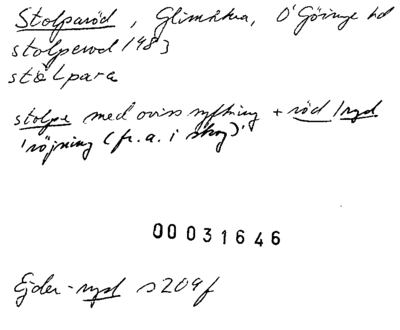 Stolparöd, Glimåkra, Ö Göinge hd
stolperod 1483
stålpara
stolpe med oviss syftning + röd / ryd
'röjning (fr. a. i skog)'
00031646
Ejder-ryd s 209 f